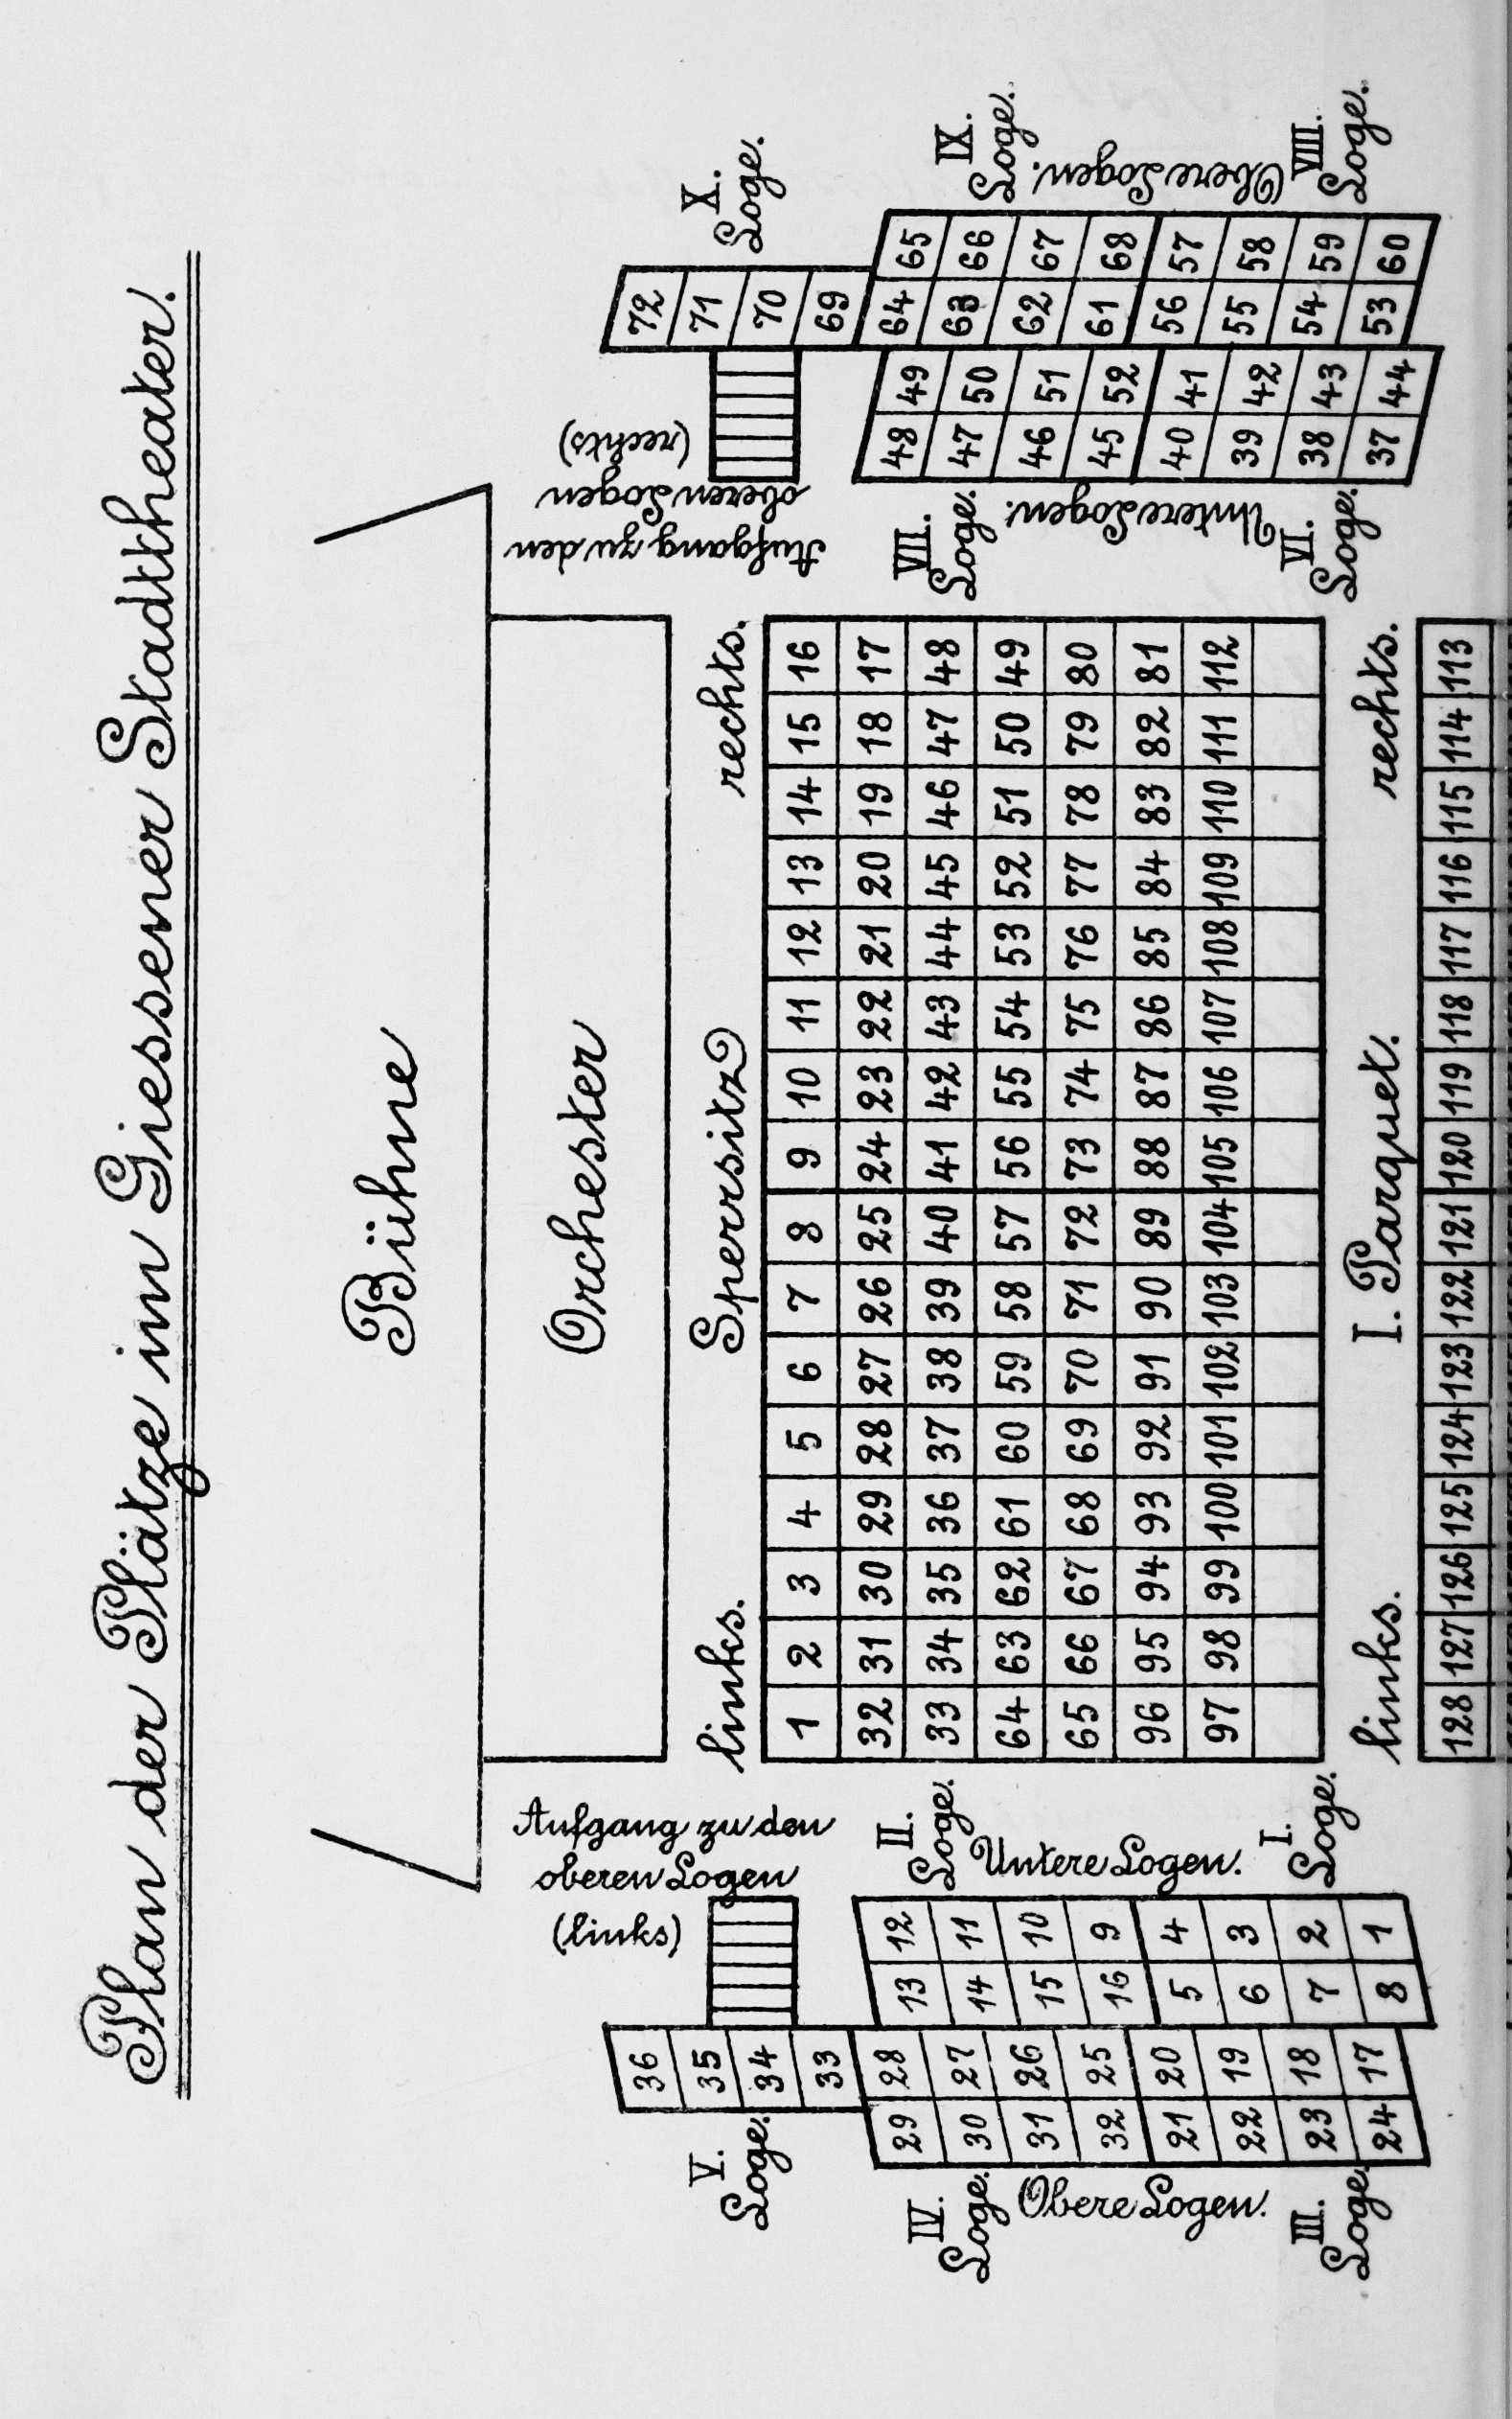 Plan der Plätze im Giessener Stadttheater.
Bühne
Orchester
Aufgang zu den
oberen Logen
(links)
Aufgang zu den
oberen Logen
(rechts)
links. Sperrsitz rechts.
1 2 3 4 5 6 7 8 9 10 11 12 13 14 15 16
32 31 30 29 28 27 26 25 24 23 22 21 20 19 18 17
33 34 35 36 37 38 39 40 41 42 43 44 45 46 47 48
64 63 62 61 60 59 58 57 56 55 54 53 52 51 50 49
65 66 67 68 69 70 71 72 73 74 75 76 77 78 79 80
96 95 94 93 92 91 90 89 88 87 86 85 84 83 82 81
97 98 99 100 101 102 103 104 105 106 107 108 109 110 111 112
links. I. Parquet. rechts.
128 127 126 125 124 123 122 121 120 119 118 117 116 115 114 113
V.
Loge.
36
35
34
33
IV.
Loge.
Obere Logen.
III.
Loge.
29 28
30 27
31 26
32 25
21 20
22 19
23 18
24 17
II.
Loge.
Untere Logen.
I.
Loge.
13 12
14 11
15 10
16 9
5 4
6 3
7 2
8 1
VII.
Loge.
Untere Logen.
VI.
Loge.
48 49
47 50
46 51
45 52
40 41
39 42
38 43
37 44
X.
Loge.
72
71
70
69
IX.
Loge.
Obere Logen.
VIII.
Loge.
64 65
63 66
62 67
61 68
56 57
55 58
54 59
53 60